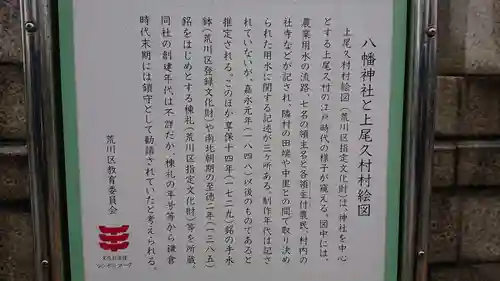 八幡神社と上尾久村村絵図
上尾久村村絵図(荒川区指定文化財)は、神社を中心
とする上尾久村の江戸時代の様子が窺える。図中には、
農業用水の流路、七名の領主名と各領主付農民、村内の
社寺などが記され、隣村の田端や中里との間で取り決め
られた用水に関する記述が三ヶ所ある。制作年代は記さ
れていないが、嘉永元年(一八四八)以後のものであると
推定される。このほか享保十四年(一七二九)銘の手水
鉢(荒川区登録文化財)や南北朝期の至徳二年(一三八五)
銘をはじめとする棟札(荒川区指定文化財)等を所蔵。
同社の創建年代は不詳だが、棟札の年号等から鎌倉
時代末期には鎮守として勧請されていたと考えられる。
荒川区教育委員会